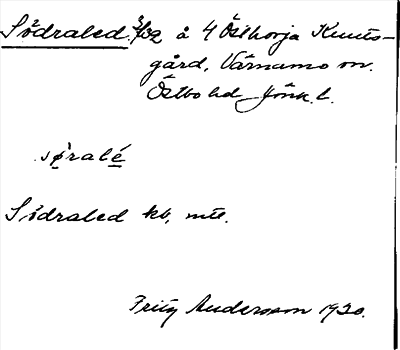 Södraled 3/32 å 4 Östhorja Knuts-
gård, Värnamo sn.
Östbo hd Jönk. l.
sø̣ralé̱
Södraled kb, mtl.
Fritz Andersson 1920.